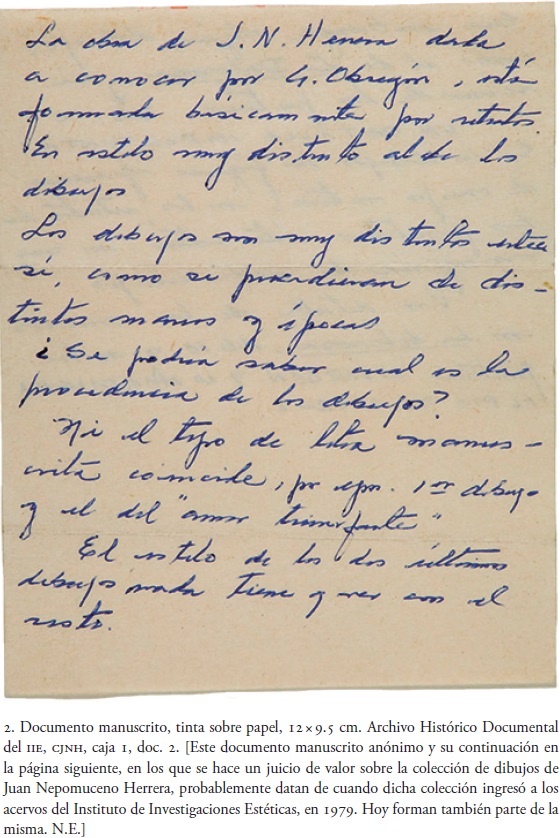 La obra de J. N. Herrera dada
a conocer por G. Obregón, está
formada básicamente por retratos.
En estilo muy distinto al de los
dibujos
Los dibujos son muy distintos entre
sí, como si procedieran de dis-
tintas manos y épocas
¿Se podría saber cual es la
procedencia de los dibujos?
Ni el tipo de letra manus-
crita coincide, pr ejm. 1er dibujo
y el del "amor triunfante"
El estilo de los dos últimos
dibujos nada tiene q ver con el
resto.
2. Documento manuscrito, tinta sobre papel, 12×9.5 cm. Archivo Histórico Documental
del IIE, CJNH, caja 1, doc. 2. [Este documento manuscrito anónimo y su continuación en
la página siguiente, en los que se hace un juicio de valor sobre la colección de dibujos de
Juan Nepomuceno Herrera, probablemente datan de cuando dicha colección ingresó a los
acervos del Instituto de Investigaciones Estéticas, en 1979. Hoy forman también parte de la
misma. N.E.]